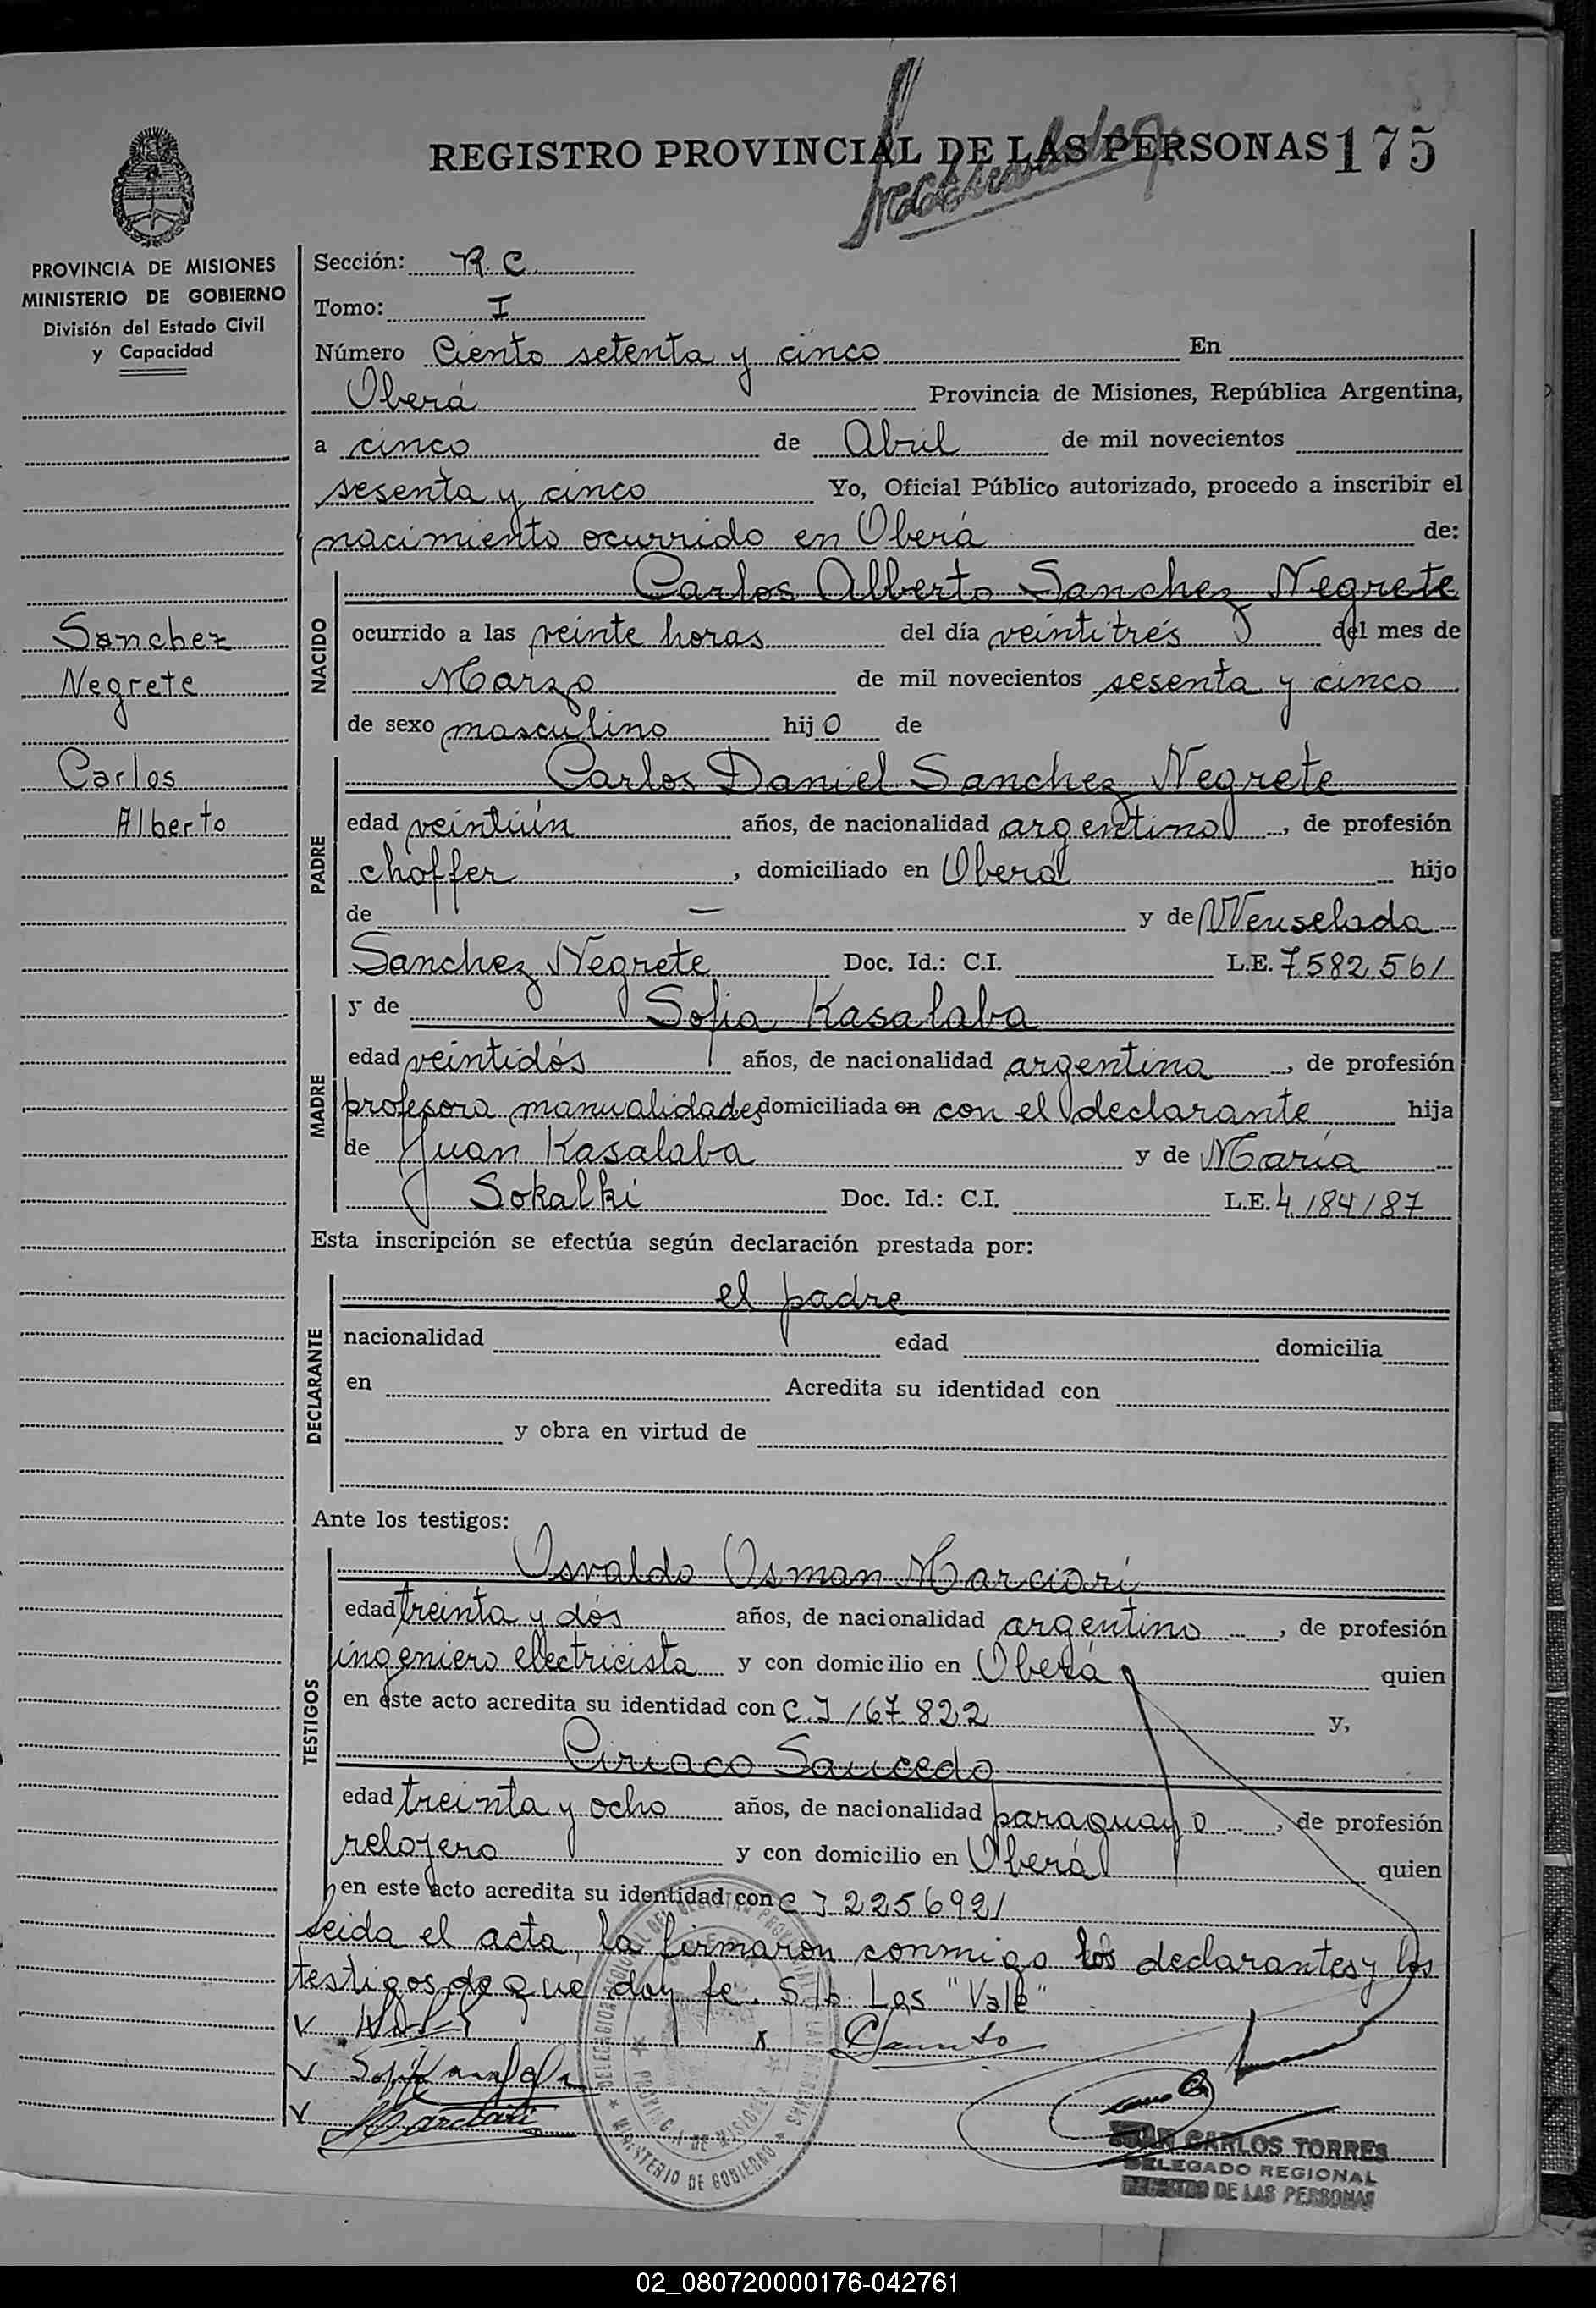 REGISTRO PROVINCIAL DE LAS PERSONAS 175
PROVINCIA DE MISIONES
MINISTERIO DE GOBIERNO
División del Estado Civil
y Capacidad
Sanchez
Negrete
Carlos
Alberto
Sección: R. C.
Tomo: I
Número Ciento setenta y cinco En
Oberá Provincia de Misiones, República Argentina,
a cinco de Abril de mil novecientos
sesenta y cinco Yo, Oficial Público autorizado, procedo a inscribir el
nacimiento ocurrido en Oberá de:
NACIDO
Carlos Alberto Sanchez Negrete
ocurrido a las veinte horas del día veintitrés del mes de
Marzo de mil novecientos sesenta y cinco
de sexo masculino hijo de
PADRE
Carlos Daniel Sanchez Negrete
edad veintiún años, de nacionalidad argentino, de profesión
choffer, domiciliado en Oberá hijo
de — y de Wenselada
Sanchez Negrete Doc. Id.: C.I. L.E. 7582561
MADRE
y de Sofia Kasalaba
edad veintidós años, de nacionalidad argentina, de profesión
profesora manualidades domiciliada en con el declarante hija
de Juan Kasalaba y de María
Sokalki Doc. Id.: C.I. L.E. 4184187
Esta inscripción se efectúa según declaración prestada por:
DECLARANTE
el padre
nacionalidad edad domicilia
en Acredita su identidad con
y obra en virtud de
Ante los testigos:
TESTIGOS
Osvaldo Osman Marciori
edad treinta y dós años, de nacionalidad argentino, de profesión
ingeniero electricista y con domicilio en Oberá quien
en este acto acredita su identidad con C.I 167.822 y,
Ciriaco Saucedo
edad treinta y ocho años, de nacionalidad paraguayo, de profesión
relojero y con domicilio en Oberá quien
en este acto acredita su identidad con C I 2256921
Leida el acta, la firmaron conmigo los declarantes y los
testigos de que doy fe. S/b. Los "Vale"
MINISTERIO DE GOBIERNO
PROVINCIA DE MISIONES
JUAN CARLOS TORRES
DELEGADO REGIONAL
REGISTRO DE LAS PERSONAS
02_080720000176-042761